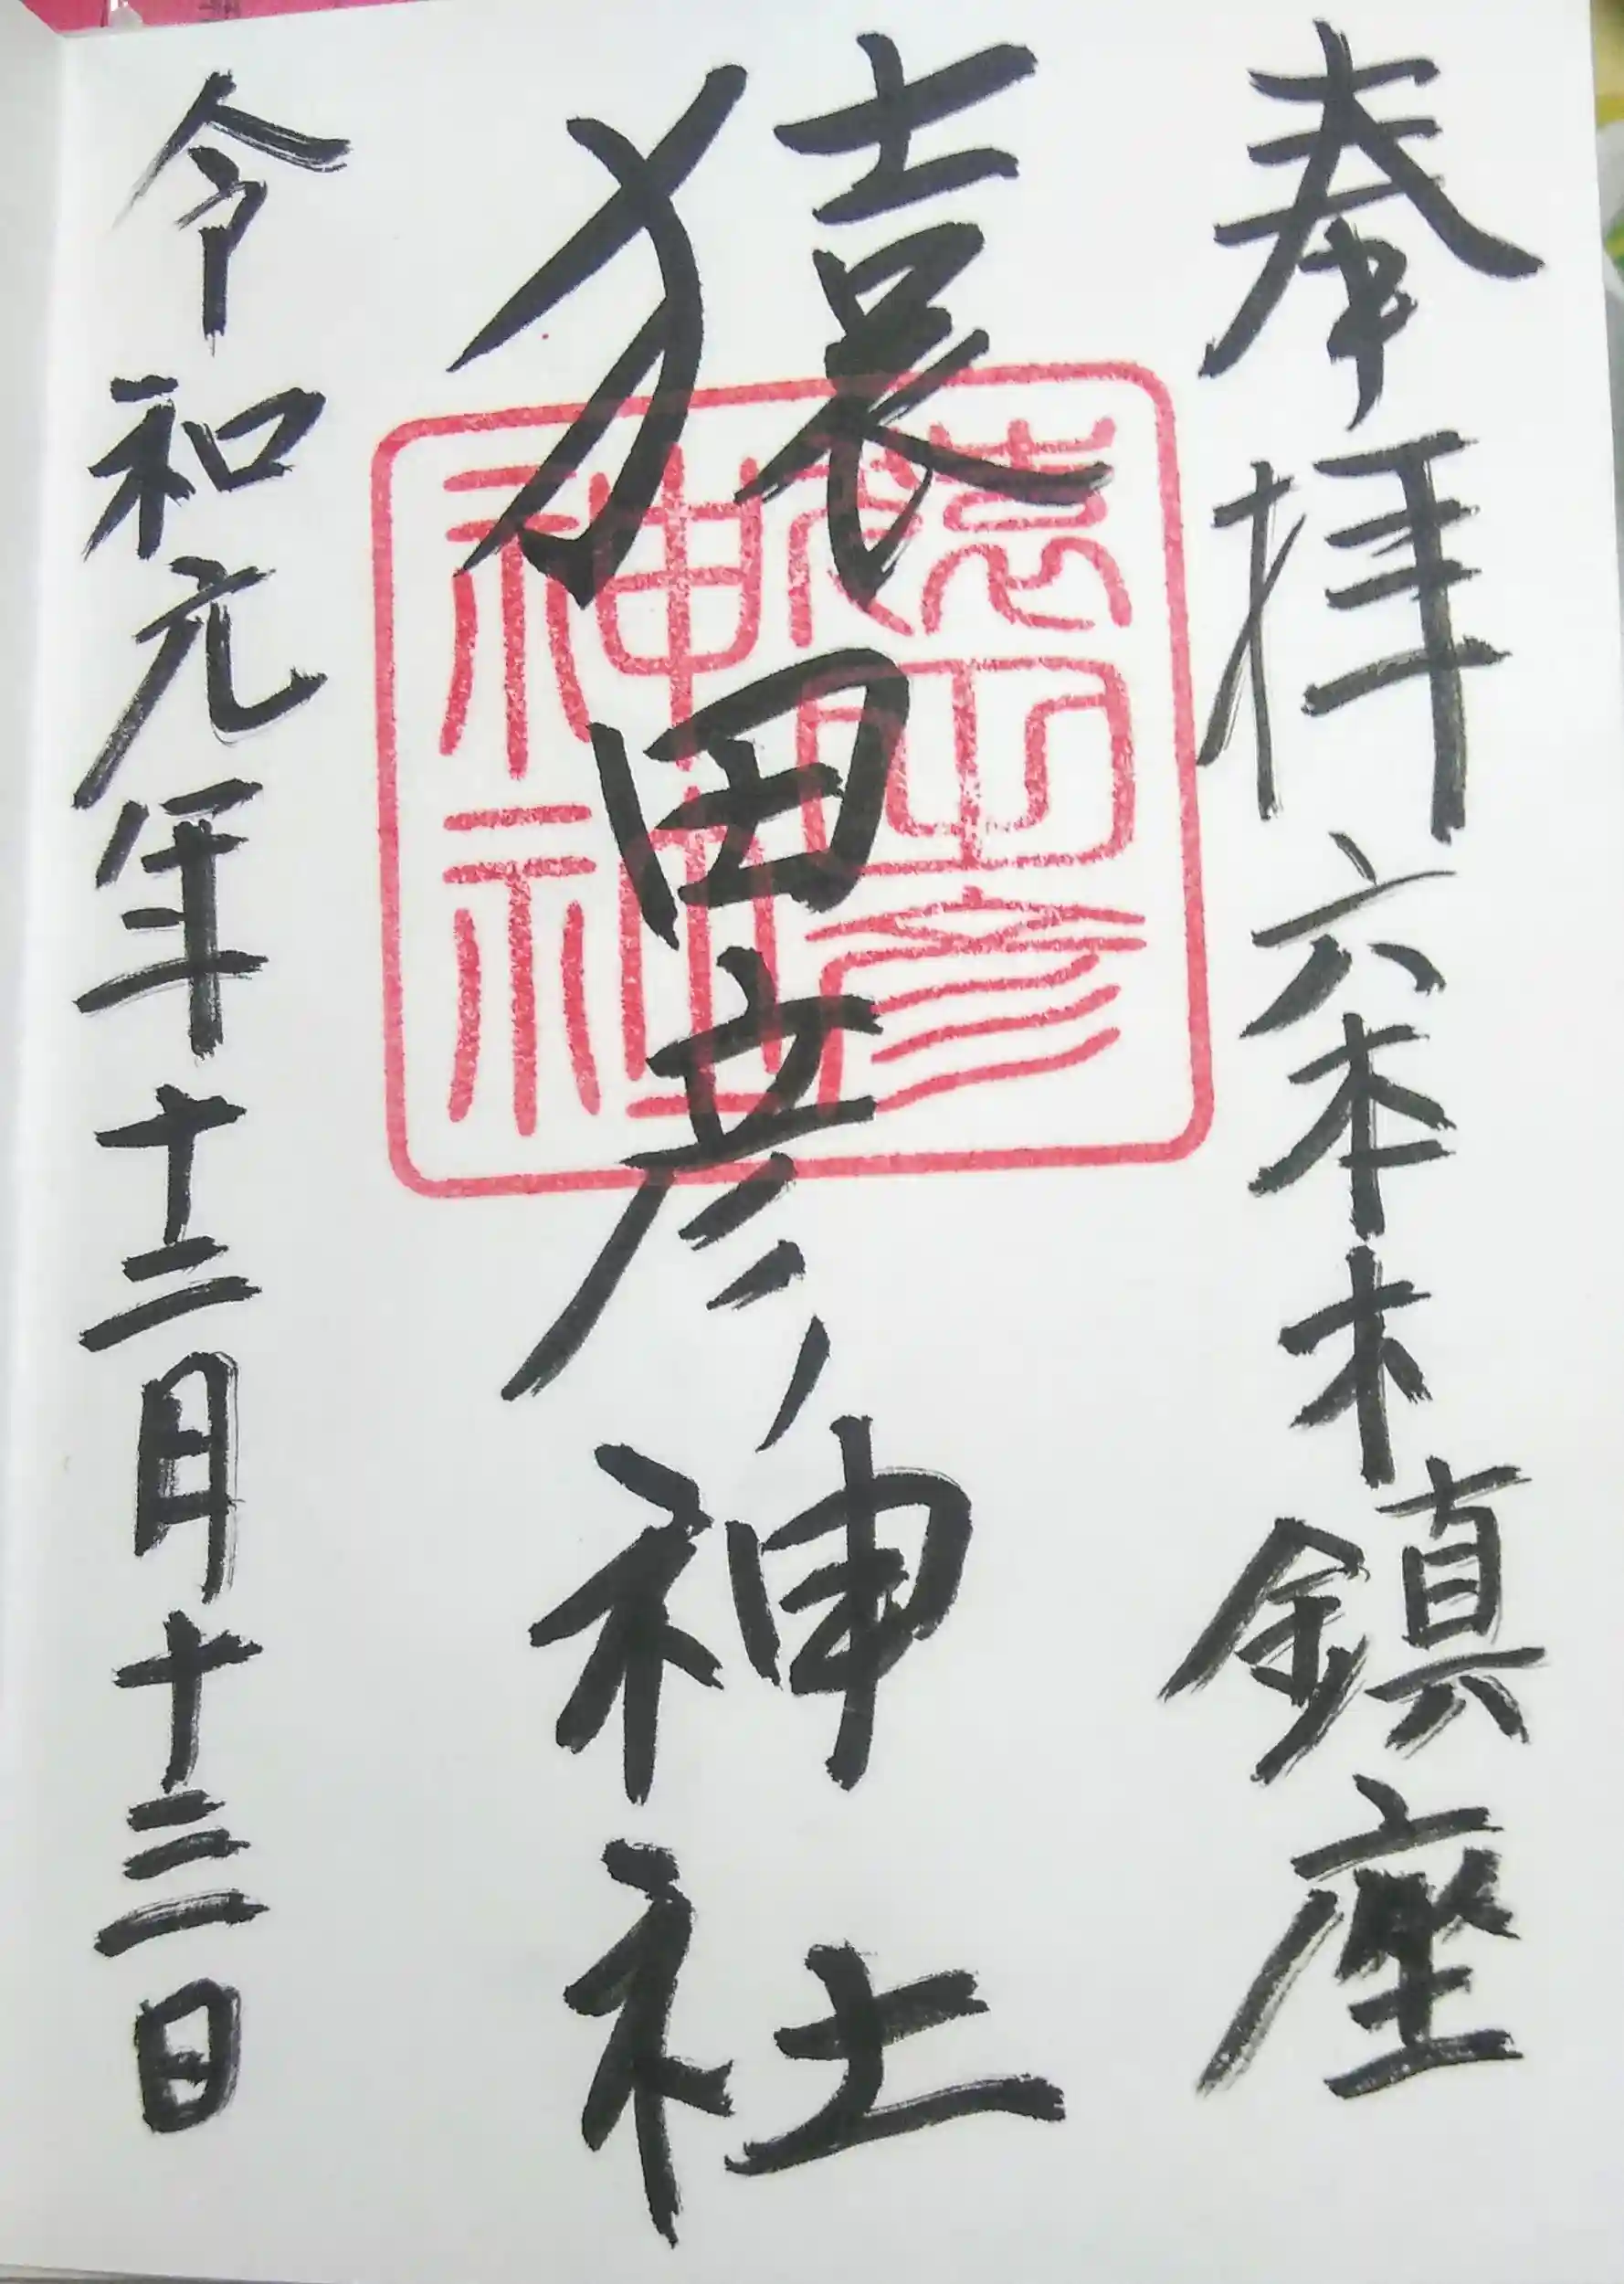 奉拝 六本木鎮座
猿田彦神社
令和元年十二月十三日
猿田彦
神社